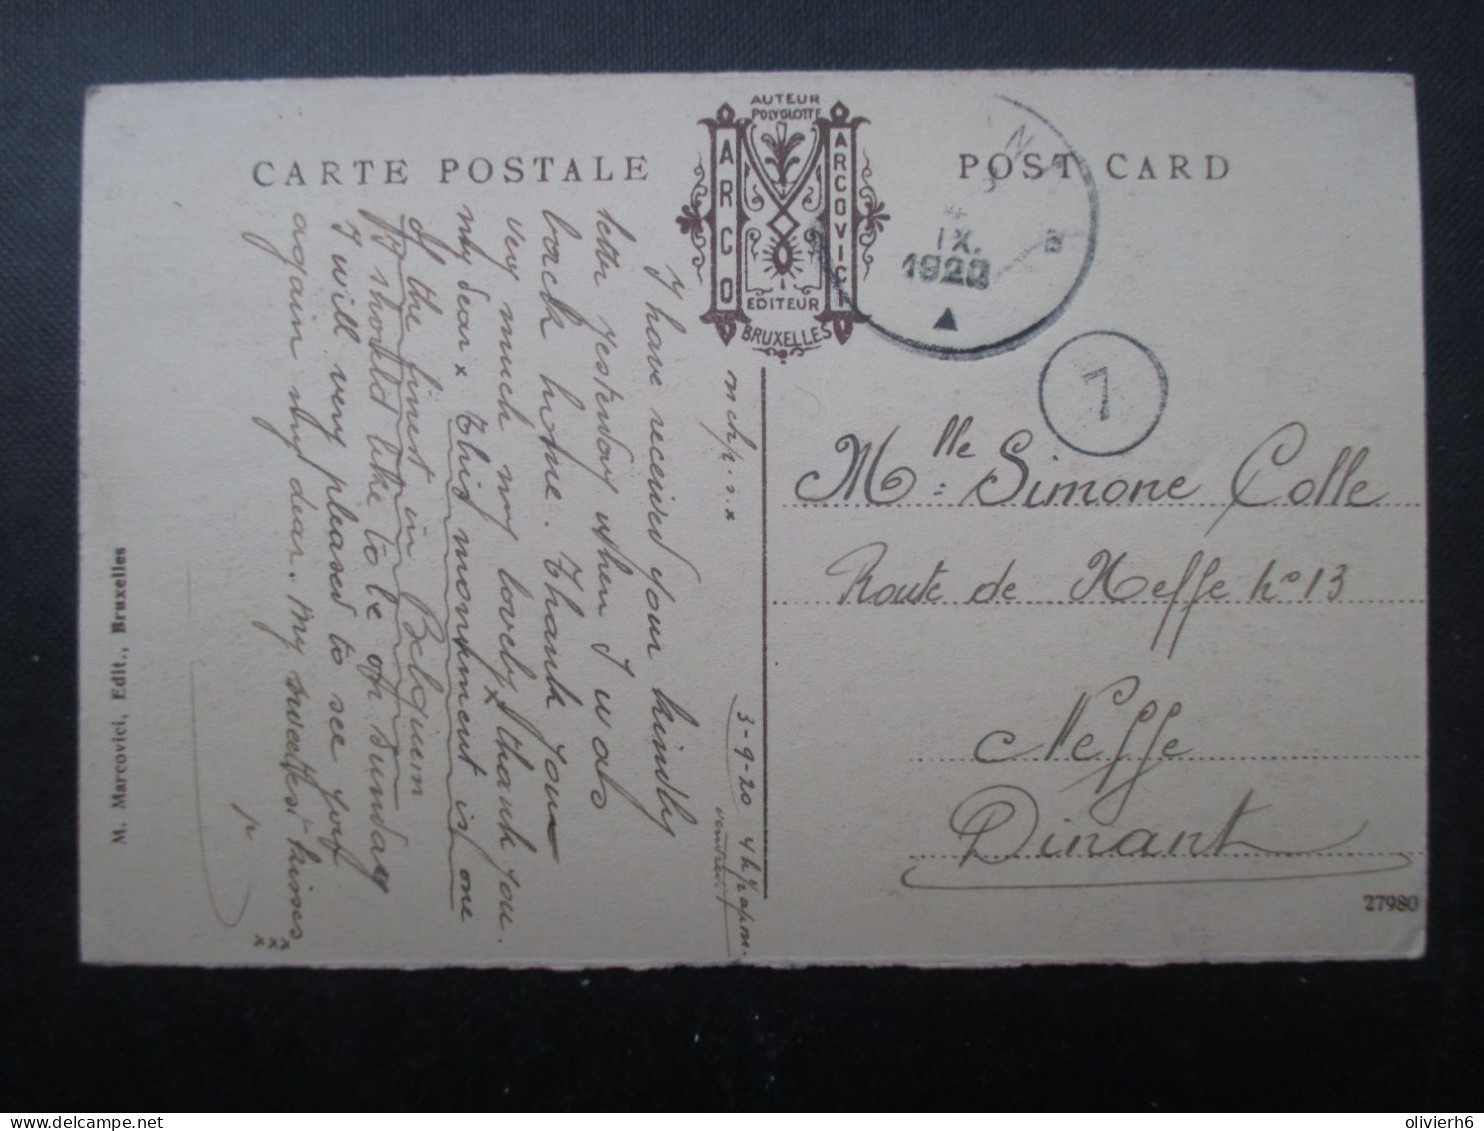 CARTE POSTALE
POST CARD
AUTEUR
POLYGLOTTE
ARCO
ARCOVICI
EDITEUR
BRUXELLES
IX.
1920
7
3-9-20 4 h 1/2 a p.m.
I have received your kindly
letter yesterday when I was
back home. Thank you
very much my lovely x thank you
my dear x This monument is one
of the finest in Belgium
I should like to be on sunday
I will very pleased to see you
again my dear. My sweetest kisses
xxx
Mlle: Simone Colle
Route de Neffe No 13
Neffe
Dinant
27980
M. Marcovici, Edit., Bruxelles
olivierh6